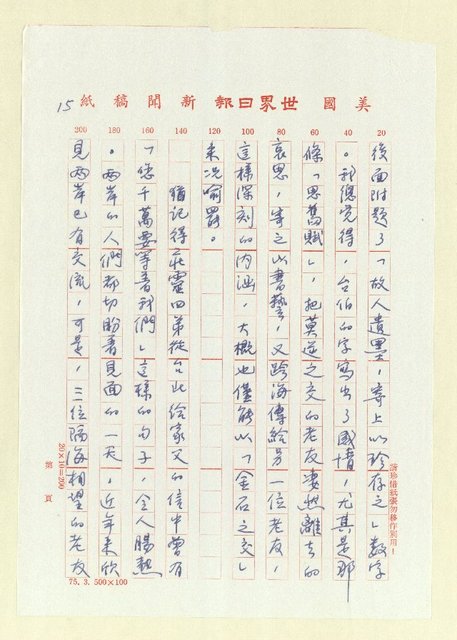 美國世界日報新聞稿紙
15
20 40 60 80 100 120 140 160 180 200
後面附題了「故人遺墨,寄上以珍存之」數字
。我總覺得,台伯的字寫出了國情,尤其是那
條「思舊賦」,把莫逆之交的老友悽然離去的
哀思,寄之以書藝,又跨海傳給另一位老友,
這樣深刻的內涵,大概也僅能以「金石之交」
來況喻罷。
猶記得莊靈四弟從台北給家父的信中曾有
「您千萬要等着我們」這樣的句子,令人腸熱
。兩岸的人們都切盼着見面的一天,近年来欣
見兩岸已有交流,可是,三位隔海相望的老友
請珍惜紙張勿移作別用!
20×10=200
第 頁
75.3.500×100